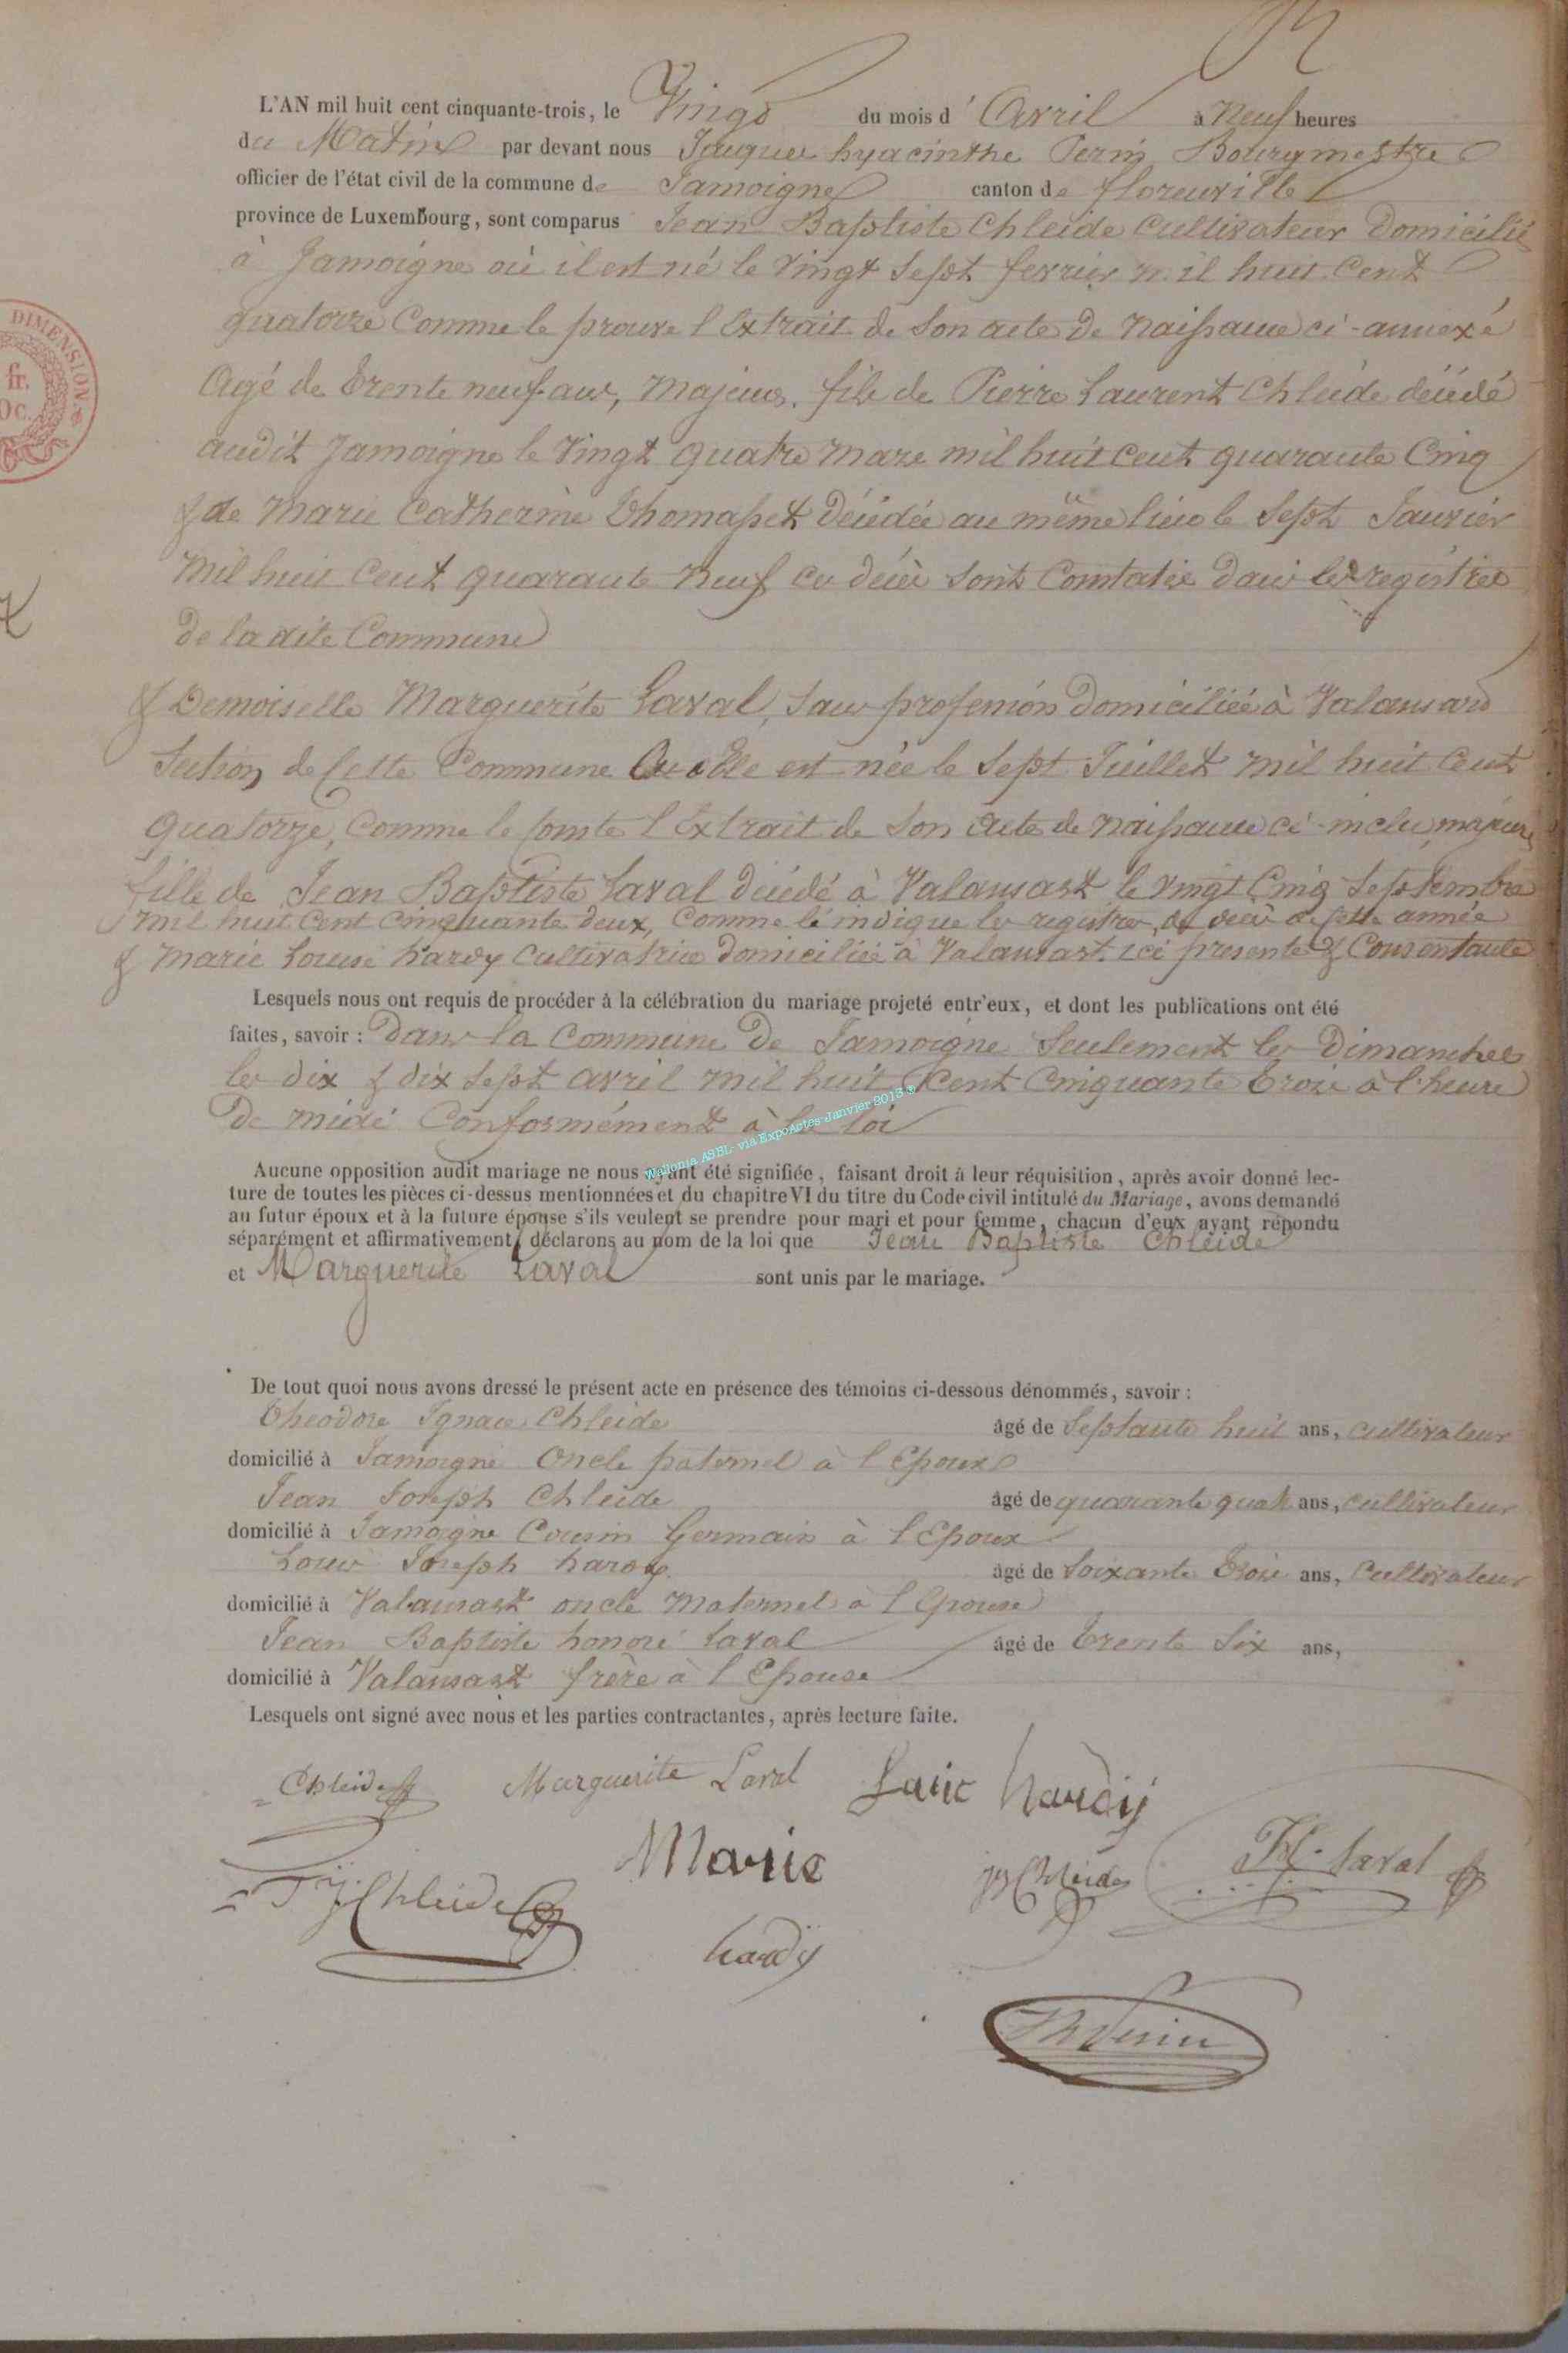 L'AN mil huit cent cinquante-trois, le Vingt du mois d'Avril à Neuf heures
du Matin par devant nous Jacques hyacinthe Perin Bourgmestre
officier de l'état civil de la commune de Jamoigne canton de florenville
province de Luxembourg, sont comparus Jean Baptiste Chleide Cultivateur Domicilié
à Jamoigne où il est né le Vingt Sept fevrier mil huit Cent
quatorze Comme le prouve l'Extrait de Son acte de Naissance ci-annexé
Agé de trente neuf ans, Majeur, fils de Pierre Laurent Chleide décédé
audit Jamoigne le Vingt quatre mars mil huit cent quarante Cinq
& de Marie Catherine Thomasset Décédée au même lieu le Sept Janvier
Mil huit Cent quarante Neuf ces décès sont Constatés dans les registres
de la dite Commune
& Demoiselle Marguerite Laval, Sans profession Domiciliée à Valansard
Section de Cette Commune Ou elle est née le Sept Juillet mil huit Cent
quatorze, Comme le Conste l'Extrait de Son Acte de Naissance ci-inclu, majeure
fille de Jean Baptiste Laval Décédé à Valansart le vingt Cinq Septembre
mil huit Cent Cinquante deux, Comme l'indique les registres de décès de cette année
& Marie Louise hardy Cultivatrice domiciliée à Valansart ici presente & Consentante
Lesquels nous ont requis de procéder à la célébration du mariage projeté entr'eux, et dont les publications ont été
faites, savoir : Dans la Commune De Jamoigne Seulement les Dimanches
les dix & dix Sept avril mil huit Cent Cinquante trois à l'heure
De midi Conformément à la loi
Wallonia ASBL- via ExpoActes-Janvier 2013 ®
Aucune opposition audit mariage ne nous ayant été signifiée, faisant droit à leur réquisition, après avoir donné lec-
ture de toutes les pièces ci-dessus mentionnées et du chapitre VI du titre du Code civil intitulé du Mariage, avons demandé
au futur époux et à la future épouse s'ils veulent se prendre pour mari et pour femme, chacun d'eux ayant répondu
séparément et affirmativement, déclarons au nom de la loi que Jean Baptiste Chleide
et Marguerite Laval sont unis par le mariage.
De tout quoi nous avons dressé le présent acte en présence des témoins ci-dessous dénommés, savoir :
Théodore Ignace Chleide âgé de Septante huit ans, cultivateur
domicilié à Jamoigne Oncle paternel à l'Epoux
Jean Joseph Chleide âgé de quarante quatre ans, cultivateur
domicilié à Jamoigne Cousin Germain à l'Epoux
Louis Joseph hardy âgé de Soixante trois ans, Cultivateur
domicilié à Valansart oncle Maternel à l'Epouse
Jean Baptiste honoré Laval âgé de trente Six ans,
domicilié à Valansart frère à l'Epouse
Lesquels ont signé avec nous et les parties contractantes, après lecture faite.
Chleide Marguerite Laval Louis hardy
T J Chleide Marie JJ Chleide Laval
hardy
Perin
DIMENSION
fr.